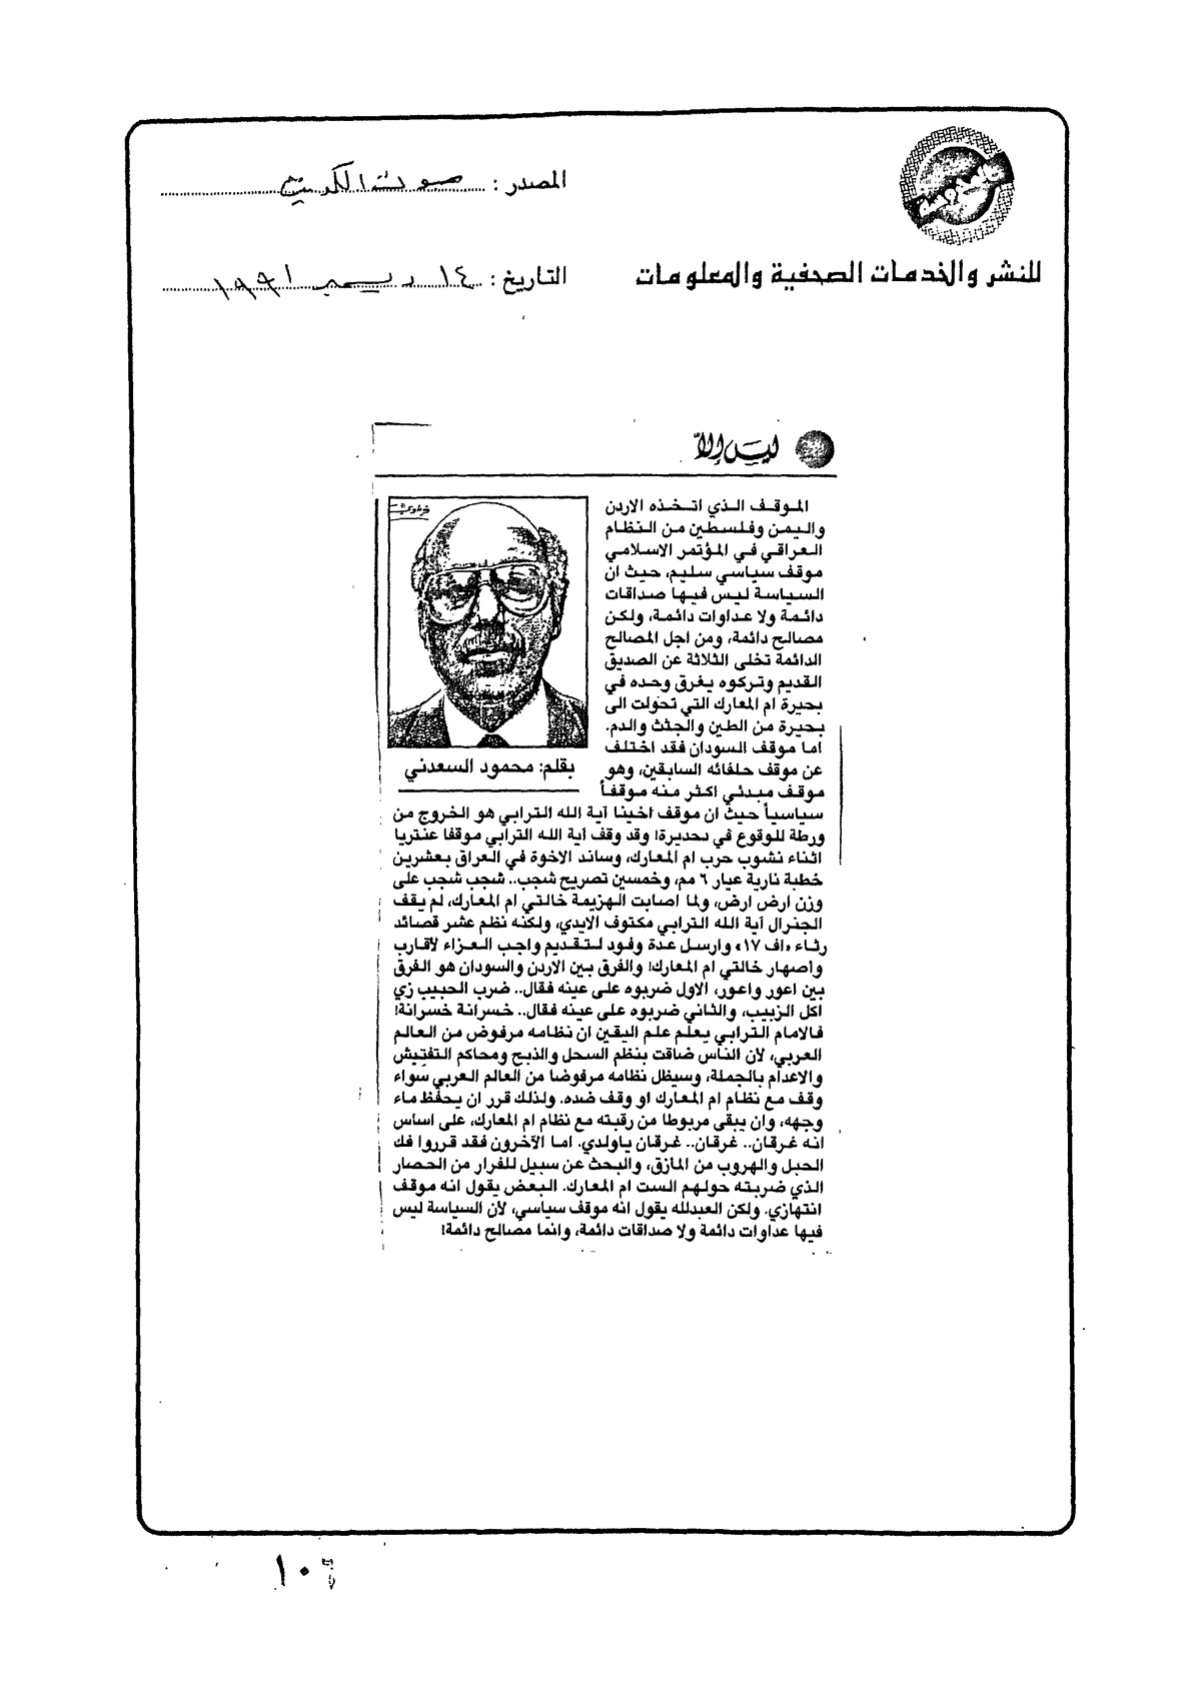 المصدر : صوت الكويت
للنشر والخدمات الصحفية والمعلومات
التاريخ : ١٤ ديسمبر ١٩٩١
ليس إلاّ
الموقف الذي اتخذه الاردن
واليمن وفلسطين من النظام
العراقي في المؤتمر الاسلامي
موقف سياسي سليم، حيث ان
السياسة ليس فيها صداقات
دائمة ولا عداوات دائمة، ولكن
مصالح دائمة، ومن اجل المصالح
الدائمة تخلى الثلاثة عن الصديق
القديم وتركوه يغرق وحده في
بحيرة ام المعارك التي تحوّلت الى
بحيرة من الطين والجثث والدم.
اما موقف السودان فقد اختلف
عن موقف حلفائه السابقين، وهو
موقف مبدئي اكثر منه موقفاً
بقلم: محمود السعدني
سياسياً حيث ان موقف اخينا آية الله الترابي هو الخروج من
ورطة للوقوع في بحديرة! وقد وقف آية الله الترابي موقفا عنتريا
اثناء نشوب حرب ام المعارك، وساند الاخوة في العراق بعشرين
خطبة نارية عيار ٦ مم، وخمسين تصريح شجب.. شجب شجب على
وزن ارض ارض، ولما اصابت الهزيمة خالتي ام المعارك، لم يقف
الجنرال آية الله الترابي مكتوف الايدي، ولكنه نظم عشر قصائد
رثاء «اف ١٧» وارسل عدة وفود لتقديم واجب العزاء لأقارب
واصهار خالتي ام المعارك! والفرق بين الاردن والسودان هو الفرق
بين اعور واعور، الاول ضربوه على عينه فقال.. ضرب الحبيب زي
اكل الزبيب، والثاني ضربوه على عينه فقال.. خسرانة خسرانة!
فالامام الترابي يعلم علم اليقين ان نظامه مرفوض من العالم
العربي، لان الناس ضاقت بنظم السحل والذبح ومحاكم التفتيش
والاعدام بالجملة، وسيظل نظامه مرفوضا من العالم العربي سواء
وقف مع نظام ام المعارك او وقف ضده. ولذلك قرر ان يحفظ ماء
وجهه، وان يبقى مربوطا من رقبته مع نظام ام المعارك، على اساس
انه غرقان.. غرقان.. غرقان ياولدي. اما الآخرون فقد قرروا فك
الحبل والهروب من المازق، والبحث عن سبيل للفرار من الحصار
الذي ضربته حولهم الست ام المعارك. البعض يقول انه موقف
انتهازي. ولكن العبدلله يقول انه موقف سياسي، لأن السياسة ليس
فيها عداوات دائمة ولا صداقات دائمة، وانما مصالح دائمة!